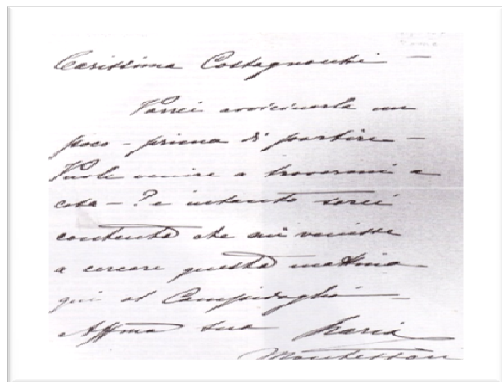 Carissima Costagnocchi –
Vorrei avvicinarla un
poco – prima di partire –
Vuole venire a trovarmi a
casa – ? e intanto sarei
contenta che mi venisse
a cercare questa mattina
qui al Campidoglio
Affma sua Maria
Montessori